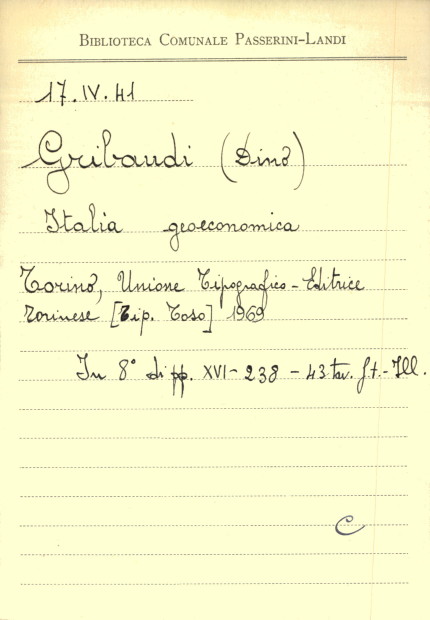 BIBLIOTECA COMUNALE PASSERINI-LANDI
17.IV.41
Gribaudi (Dino)
Italia geoeconomica
Torino, Unione Tipografico-Editrice
Torinese [Tip. Toso] 1969
In 8° di pp. XVI-238-43 tav. f.t.-Ill.
C